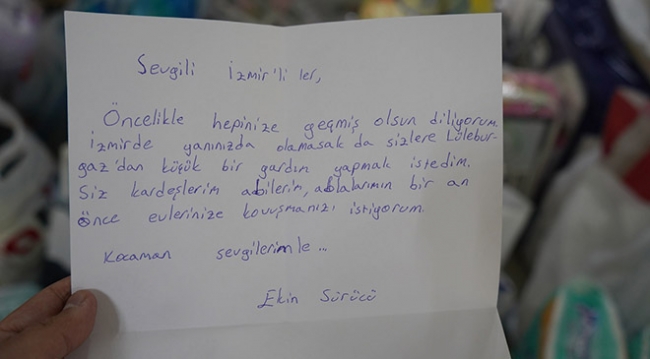 Sevgili İzmir'li ler,
Öncelikle hepinize geçmiş olsun diliyorum.
İzmirde yanınızda olamasak da sizlere Lülebur-
gaz'dan küçük bir yardım yapmak istedim.
Siz kardeşlerim abilerim, ablalarımın bir an
önce evlerinize kavuşmanızı istiyorum.
Kocaman sevgilerimle...
Ekin Sürücü